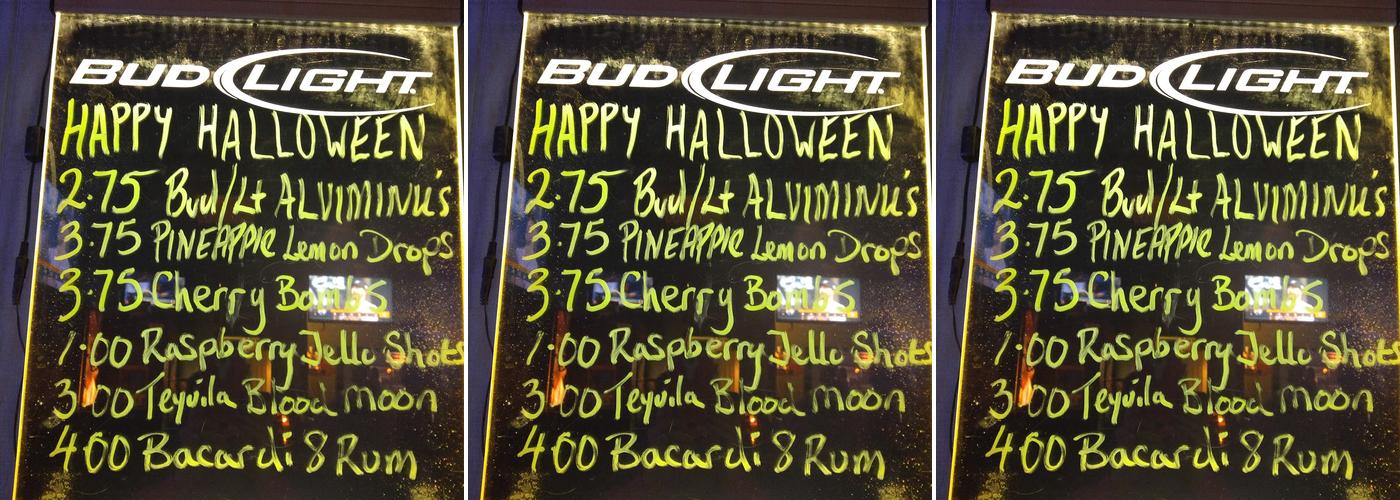 BUD LIGHT.
HAPPY HALLOWEEN
2.75 Bud/Lt ALVIMINU's
3.75 PINEAPPlE Lemon Drops
3.75 Cherry Bombs
1.00 Raspberry Jello Shots
3.00 Tequila Blood moon
4.00 Bacardi 8 Rum
BUD LIGHT.
HAPPY HALLOWEEN
2.75 Bud/Lt ALVIMINU's
3.75 PINEAPPlE Lemon Drops
3.75 Cherry Bombs
1.00 Raspberry Jello Shots
3.00 Tequila Blood moon
4.00 Bacardi 8 Rum
BUD LIGHT.
HAPPY HALLOWEEN
2.75 Bud/Lt ALVIMINU's
3.75 PINEAPPlE Lemon Drops
3.75 Cherry Bombs
1.00 Raspberry Jello Shots
3.00 Tequila Blood moon
4.00 Bacardi 8 Rum